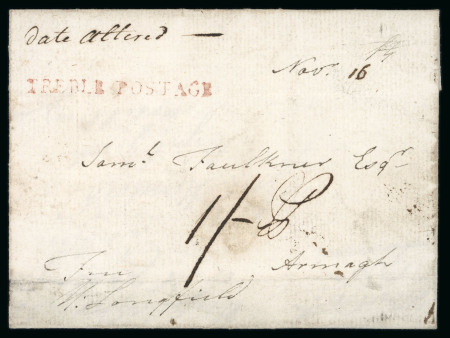 Date Altered —
Nov. 16
TREBLE POSTAGE
Saml. Faulkner Esqr.
1/-
Armagh
Free
W. Longfield